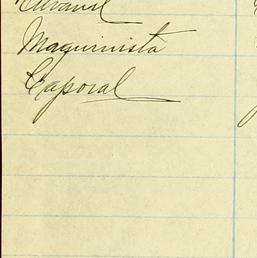 Maquinista
Caporal